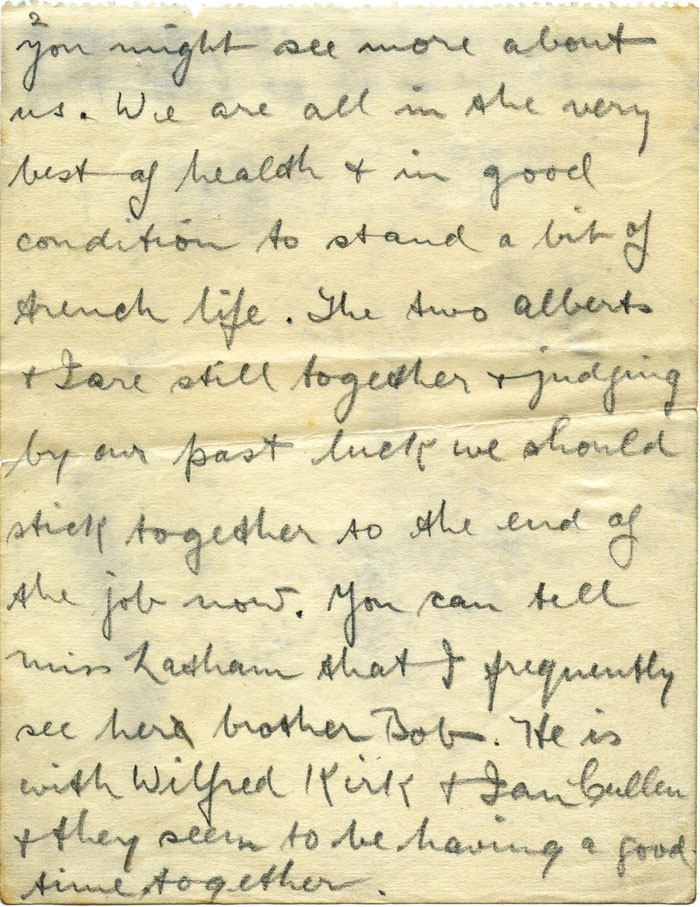 2
you might see more about
us. We are all in the very
best of health & in good
condition to stand a bit of
trench life. The two alberts
& I are still together & judging
by our past luck we should
stick together to the end of
the job now. You can tell
miss Latham that I frequently
see her brother Bob. He is
with Wilfred Kirk & Ian Cullen
& they seem to be having a good
time together.